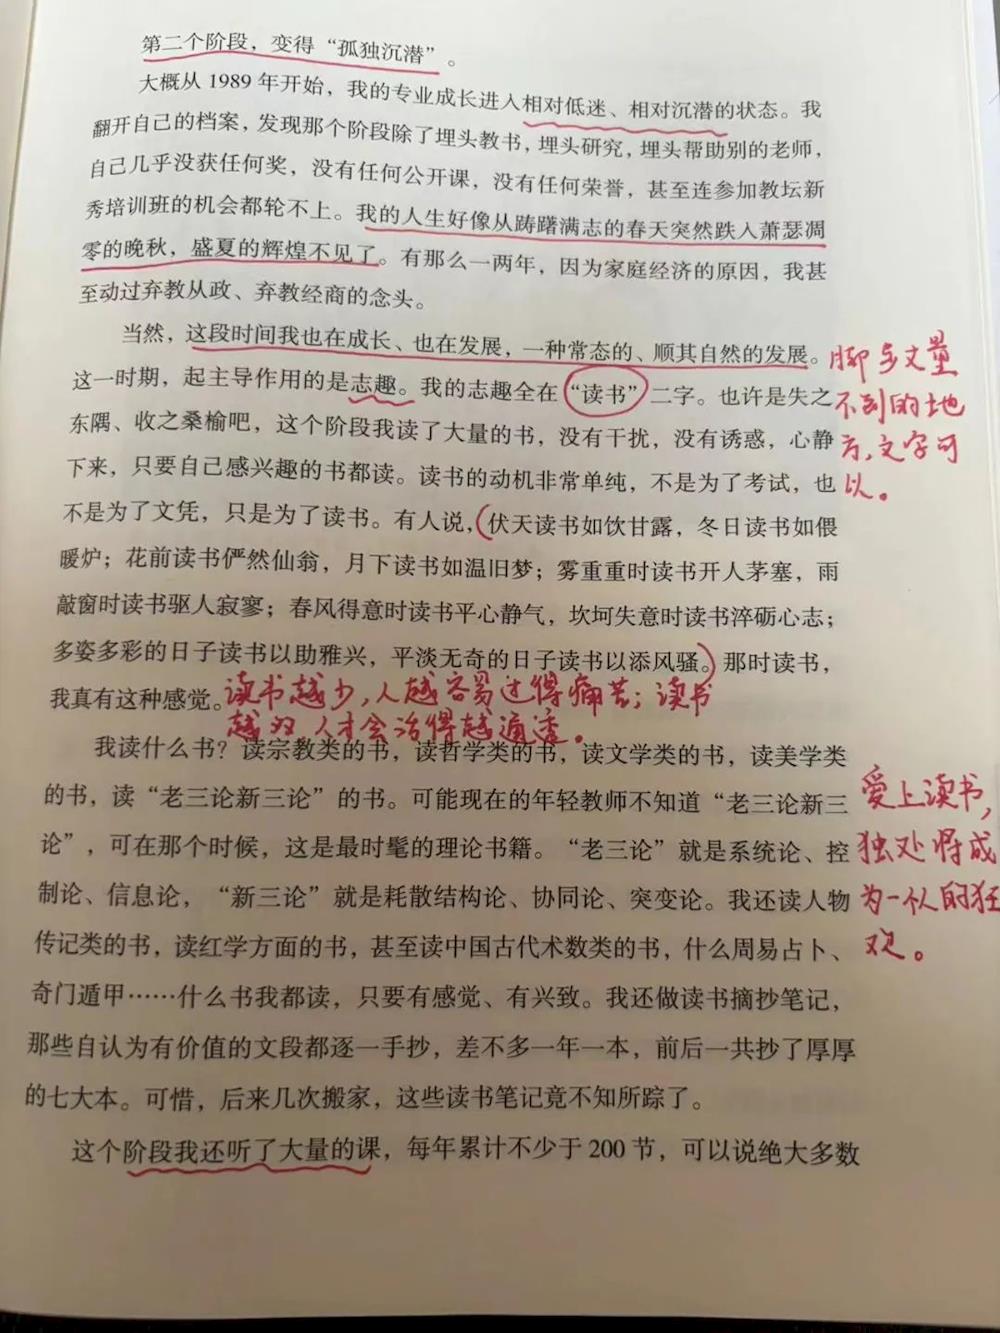 第二个阶段，变得“孤独沉潜”。
大概从 1989 年开始，我的专业成长进入相对低迷、相对沉潜的状态。我
翻开自己的档案，发现那个阶段除了埋头教书，埋头研究，埋头帮助别的老师，
自己几乎没获任何奖，没有任何公开课，没有任何荣誉，甚至连参加教坛新
秀培训班的机会都轮不上。我的人生好像从踌躇满志的春天突然跌入萧瑟凋
零的晚秋，盛夏的辉煌不见了。有那么一两年，因为家庭经济的原因，我甚
至动过弃教从政、弃教经商的念头。
当然，这段时间我也在成长、也在发展，一种常态的、顺其自然的发展。
这一时期，起主导作用的是志趣。我的志趣全在“读书”二字。也许是失之
东隅、收之桑榆吧，这个阶段我读了大量的书，没有干扰，没有诱惑，心静
下来，只要自己感兴趣的书都读。读书的动机非常单纯，不是为了考试，也
不是为了文凭，只是为了读书。有人说，伏天读书如饮甘露，冬日读书如偎
暖炉；花前读书俨然仙翁，月下读书如温旧梦；雾重重时读书开人茅塞，雨
敲窗时读书驱人寂寥；春风得意时读书平心静气，坎坷失意时读书淬砺心志；
多姿多彩的日子读书以助雅兴，平淡无奇的日子读书以添风骚。那时读书，
我真有这种感觉。
脚步丈量
不到的地
方，文字可
以。
读书越少，人越容易过得痛苦；读书
越多，人才会活得越通透。
我读什么书？读宗教类的书，读哲学类的书，读文学类的书，读美学类
的书，读“老三论新三论”的书。可能现在的年轻教师不知道“老三论新三
论”，可在那个时候，这是最时髦的理论书籍。“老三论”就是系统论、控
制论、信息论，“新三论”就是耗散结构论、协同论、突变论。我还读人物
传记类的书，读红学方面的书，甚至读中国古代术数类的书，什么周易占卜、
奇门遁甲……什么书我都读，只要有感觉、有兴致。我还做读书摘抄笔记，
那些自认为有价值的文段都逐一手抄，差不多一年一本，前后一共抄了厚厚
的七大本。可惜，后来几次搬家，这些读书笔记竟不知所踪了。
爱上读书，
独处将成
为一个人的狂
欢。
这个阶段我还听了大量的课，每年累计不少于 200 节，可以说绝大多数